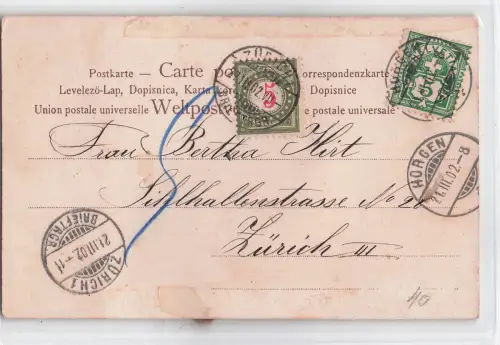 Postkarte — Carte po orrespondenzkarte
Levelezö-Lap, Dopisnica, Karta Dopisnice
Union postale universelle Weltpost e postale universale
5
Frau Bertha Hirt
Sihlhallenstrasse No 20
Zürich III
HORGEN
21.III.02.-8
ZÜRICH 1
21.III.02.-11
BRIEFTRÄG
ZÜRICH
5
10